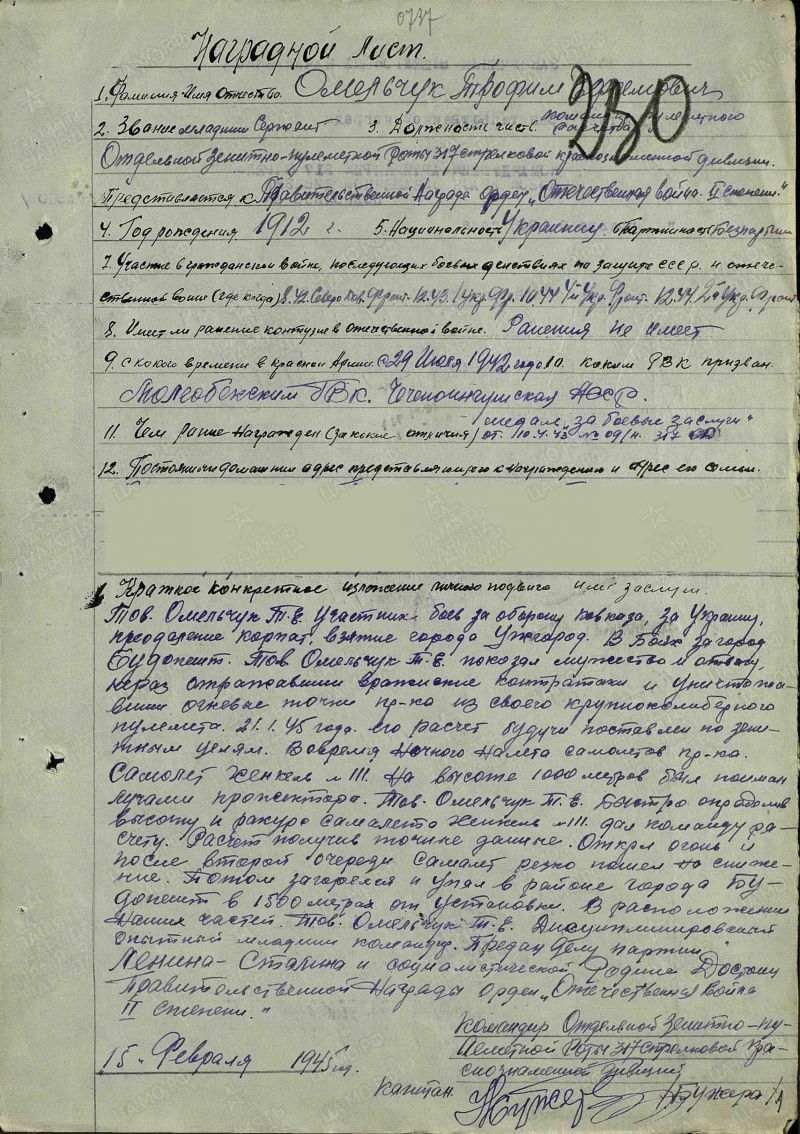 0737
Наградной Лист.
1. Фамилия Имя Отчество. Омельчук Трофим
ОВ0
2. Звание младший Сержант 3. Должность часть. командир пулеметного
расчета
Отдельной Зенитно-пулеметной Роты 317 стрелковой краснознаменной дивизии.
Представляется к Правительственной Награда орден „Отечественная война II степени."
4. Год рождения 1912 г. 5. Национальность Украинец. 6 Партийность Безпартийн
7. Участие в гражданской войне, последующих боевых действиях по защите СССР и отече-
ственной войне (где когда) 8.42. Северо Кав. Фронт. 12.43. 1 Укр. Фр. 10.44 4й Укр. Фронт. 12.44. 2й Укр. Фронт
8. Имеет ли ранение контузие в отечественной войне. Ранения не имеет
9. с какого времени в красной Армии. с 29 Июля 1942 года 10. каким РВК призван.
Молгобекским РВК. Чеченоингушская АССР.
медаль „за боевые заслуги"
11. Чем ранее Награжден (за какие отличия) от. 10.4.43 № 09/н. 317 СД
12. Постоянный домашний адрес представляющего к Награждению и Адрес его семьи.
1 Краткое конкретное изложение личного подвига или заслуги.
Тов. Омельчук Т.Е. участник боев за оборону Кавказа, за Украину,
преодаление карпат, взятие города Ужгород. В Боях за город
Будопешт. Тов Омельчук Т.Е. показал мужество и отвагу,
нераз отражавший вражеские контратаки и уничтожа-
вший огневые точки пр-ка из своего крупнокалиберного
пулемета. 21.1.45 года. его расчет будучи поставлен по зени-
тным целям. Вовремя Ночного Налета самолетов пр-ка.
Самолет Хенкель № 111. На высоте 1000 метров был пойман
лучами прожектора. Тов. Омельчук Т.Е. Быстро определив
высоту и ракурс самалета Хенкель № 111. дал команду ра-
счету. Расчет получив точные данные. Открл огонь и
после второй очереди Самалет резко пошел на сниже-
ние. Потом загорелся и упал в районе города Бу-
допешт в 1500 метрах от установки. В расположении
Наших частей. Тов. Омельчук Т.Е. Дисциплинированный
опытный младший командир. Предан делу партии
Ленина-Сталина и социалистической Родине Достоин
Правительственной Награды орден „Отечественная война
II степени."
Командир Отдельной Зенитно-пу-
леметной Роты 317 стрелковой Кра-
снознаменной дивизии
„15" Февраля 1945 год.
капитан. /Бужера/